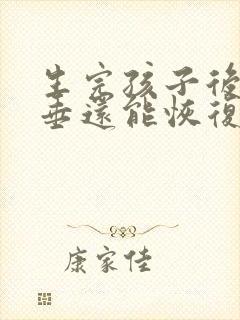 生完孩子後
垂還能恢復
康家佳